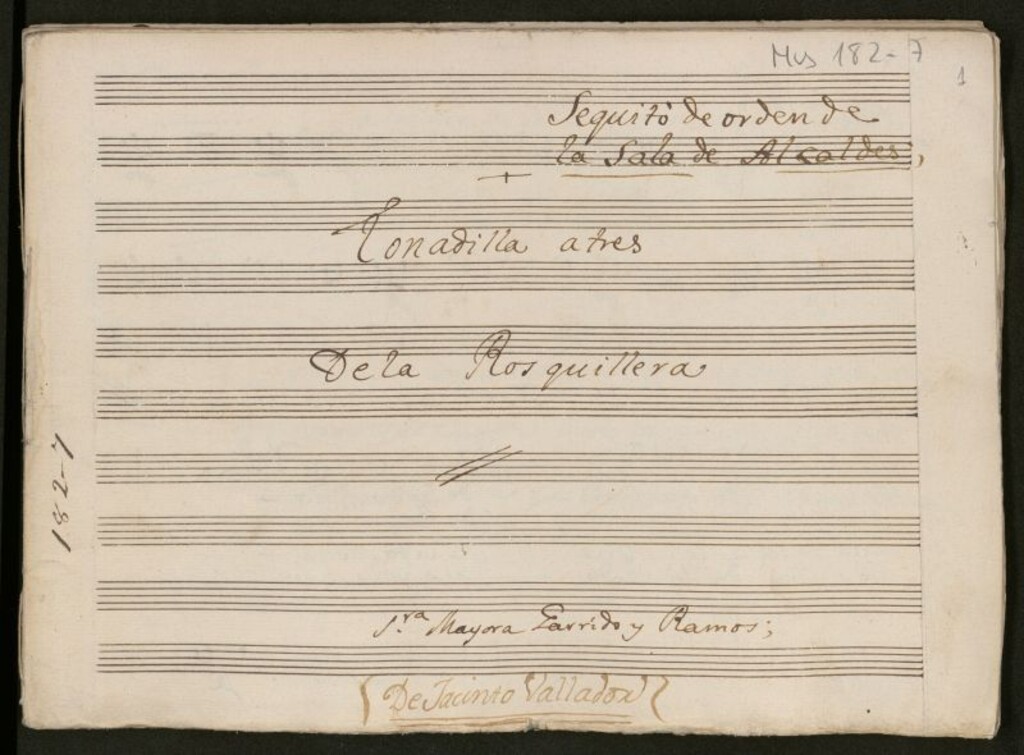 Mus 182-7
1
Sequitò de orden de
la Sala de Alcaldes,
Tonadilla a tres
De la Rosquillera
182-7
S.ra Mayora Garrido y Ramos;
(De Jacinto Valledor)